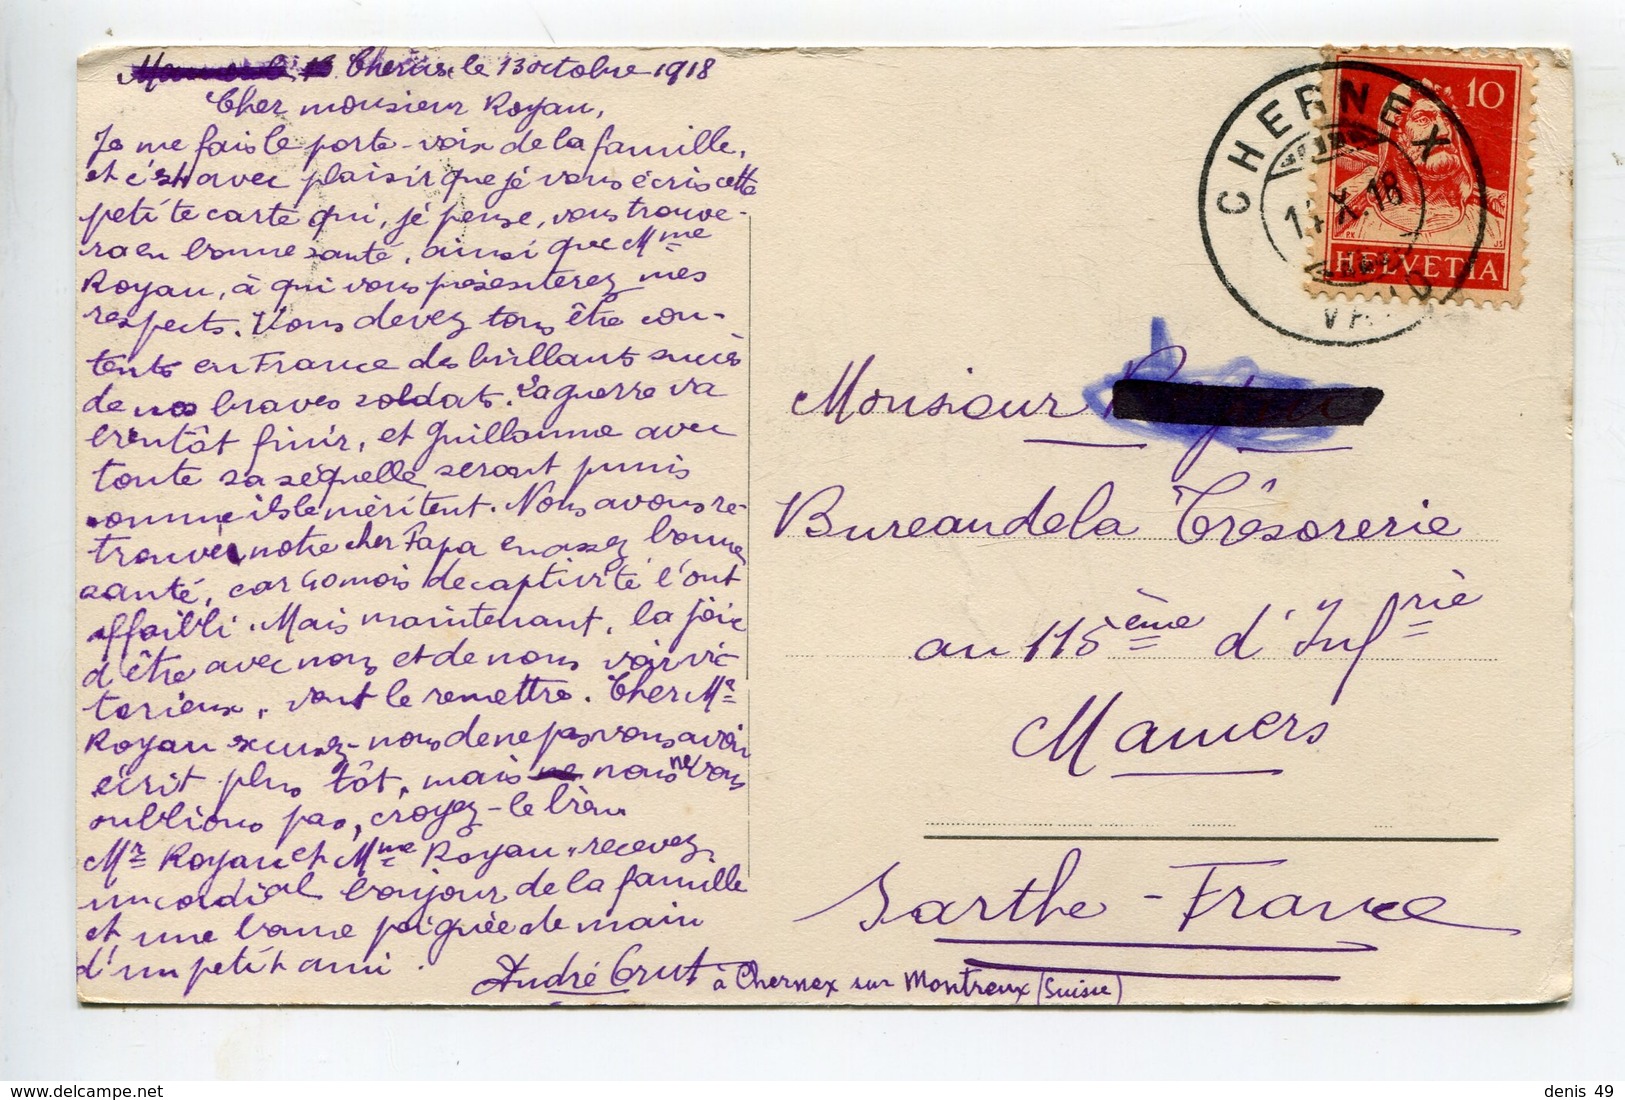 le 13 octobre 1918
Cher monsieur Royau,
Je me fais le porte-voix de la famille,
et c'est avec plaisir que je vous écris cette
petite carte qui, je pense, vous trouve-
ra en bonne santé, ainsi que Mme
Royau, à qui vous présenterez mes
respects. Vous devez tous être con-
tents en France des brillants succès
de nos braves soldats. La guerre va
bientôt finir, et Guillaume avec
toute sa séquelle seront punis
comme ils le méritent. Nous avons re-
trouvé notre cher Papa en assez bonne
santé, car 40 mois de captivité l'ont
affaibli. Mais maintenant, la joie
d'être avec nous et de nous voir vic-
torieux, vont le remettre. Cher Mr
Royau excusez-nous de ne pas vous avoir
écrit plus tôt, mais nous ne vous
oublions pas, croyez-le bien
Mr Royau et Mme Royau, recevez
un cordial bonjour de la famille
et une bonne poignée de main
d'un petit ami.
André Crut à Chernex sur Montreux (Suisse)
CHERNEX
X.18
10
HELVETIA
Monsieur
Bureau de la Trésorerie
au 115ème d'Infrie
Mamers
Sarthe - France
denis 49